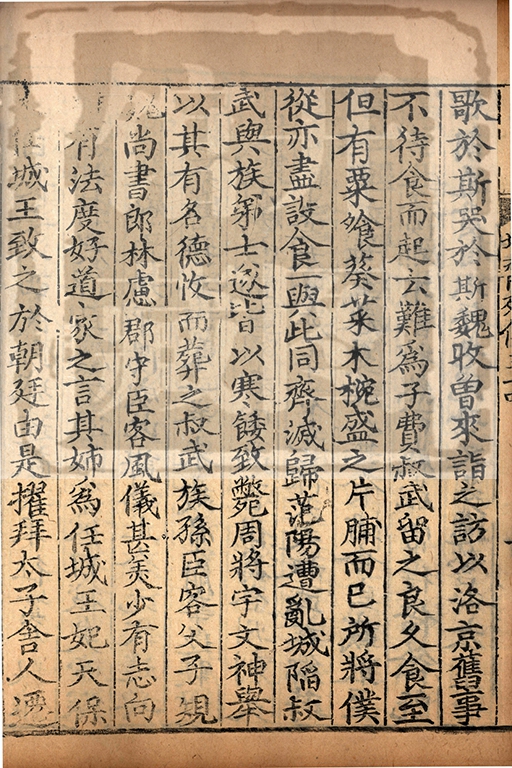 歌於斯哭於斯魏收曾來詣之訪以洛京舊事
不待食而起云難為子費叔武留之良久食至
但有粟飡葵菜木椀盛之片脯而已所將僕
從亦盡設食一與此同齊滅歸范陽遭亂城陷叔
武與族弟士邃皆以寒餧致斃周將宇文神舉
以其有名德收而葬之叔武族孫臣客父子規
尚書郎林慮郡守臣客風儀甚美少有志向
有法度好道家之言其姉為任城王妃天保
任城王致之於朝廷由是擢拜太子舎人遷